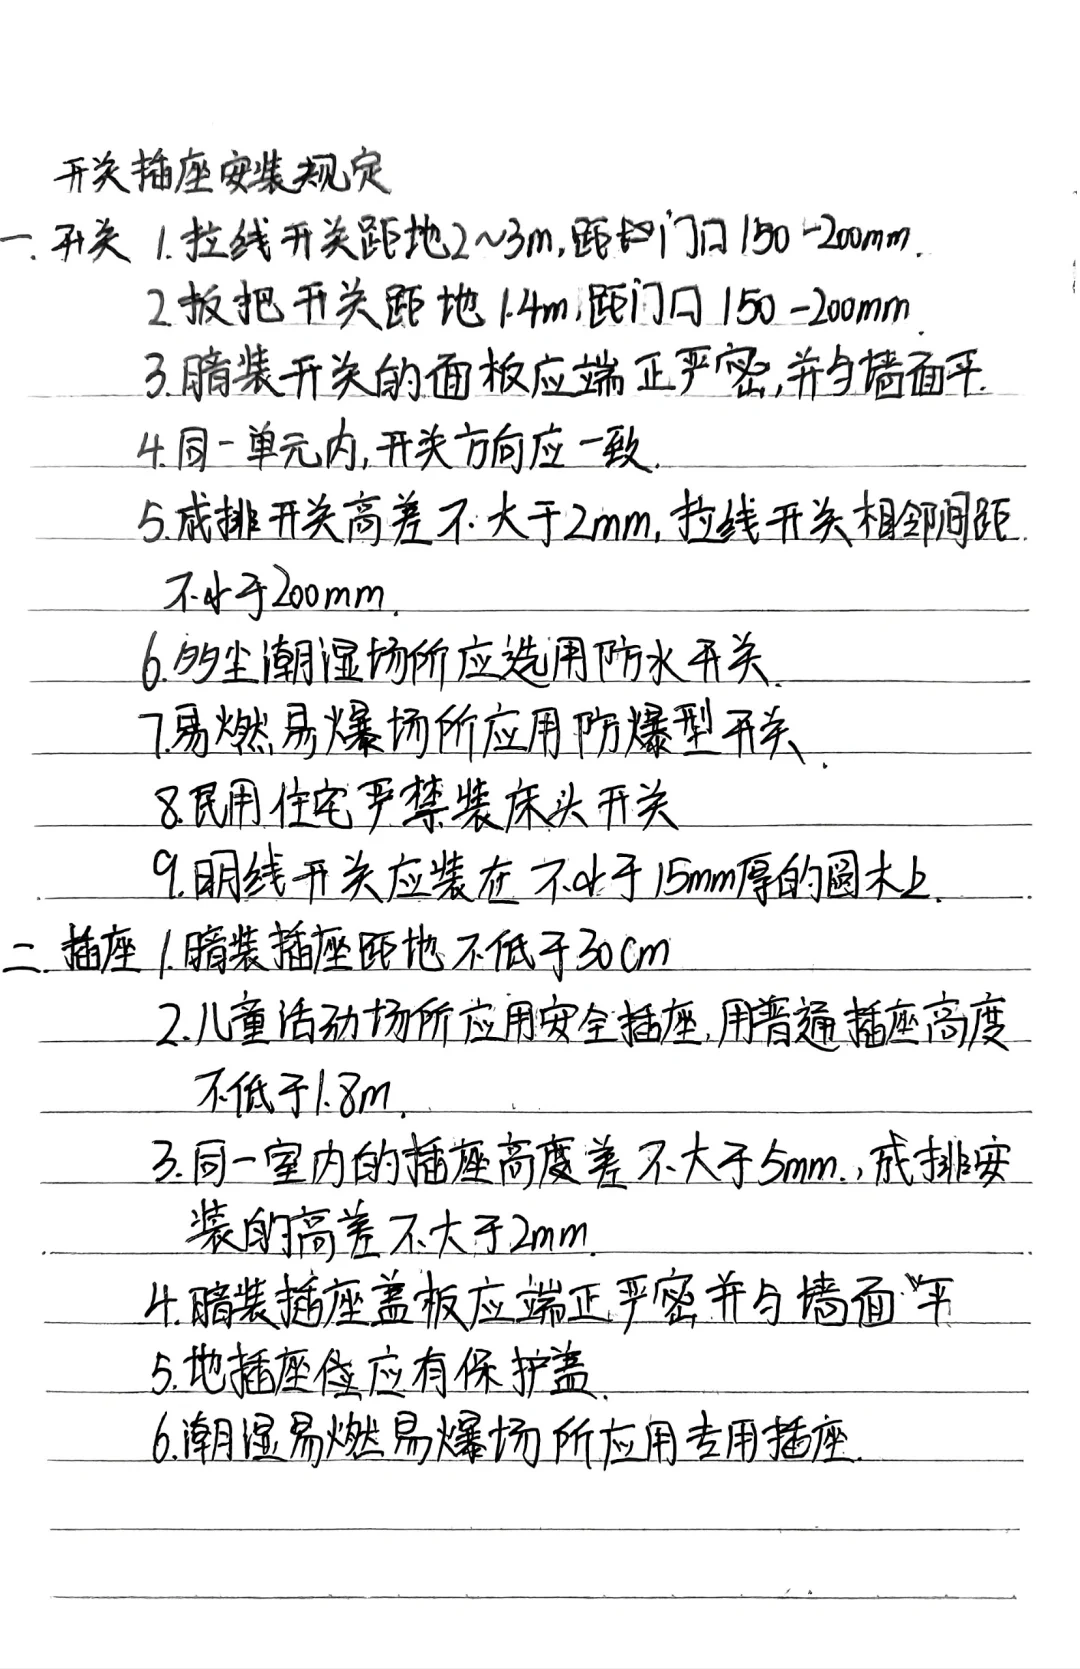 开关插座安装规定
一.开关 1.拉线开关距地2~3m,距门口150-200mm.
2.扳把开关距地1.4m,距门口150-200mm.
3.暗装开关的面板应端正严密,并与墙面平.
4.同一单元内,开关方向应一致.
5.成排开关高差不大于2mm,拉线开关相邻间距
不小于200mm.
6.多尘潮湿场所应选用防水开关.
7.易燃易爆场所应用防爆型开关.
8.民用住宅严禁装床头开关
9.明线开关应装在不小于15mm厚的圆木上.
二.插座 1.暗装插座距地不低于30cm
2.儿童活动场所应用安全插座,用普通插座高度
不低于1.8m.
3.同一室内的插座高度差不大于5mm.,成排安
装的高差不大于2mm.
4.暗装插座盖板应端正严密并与墙面平
5.地插座应有保护盖.
6.潮湿易燃易爆场所应用专用插座.